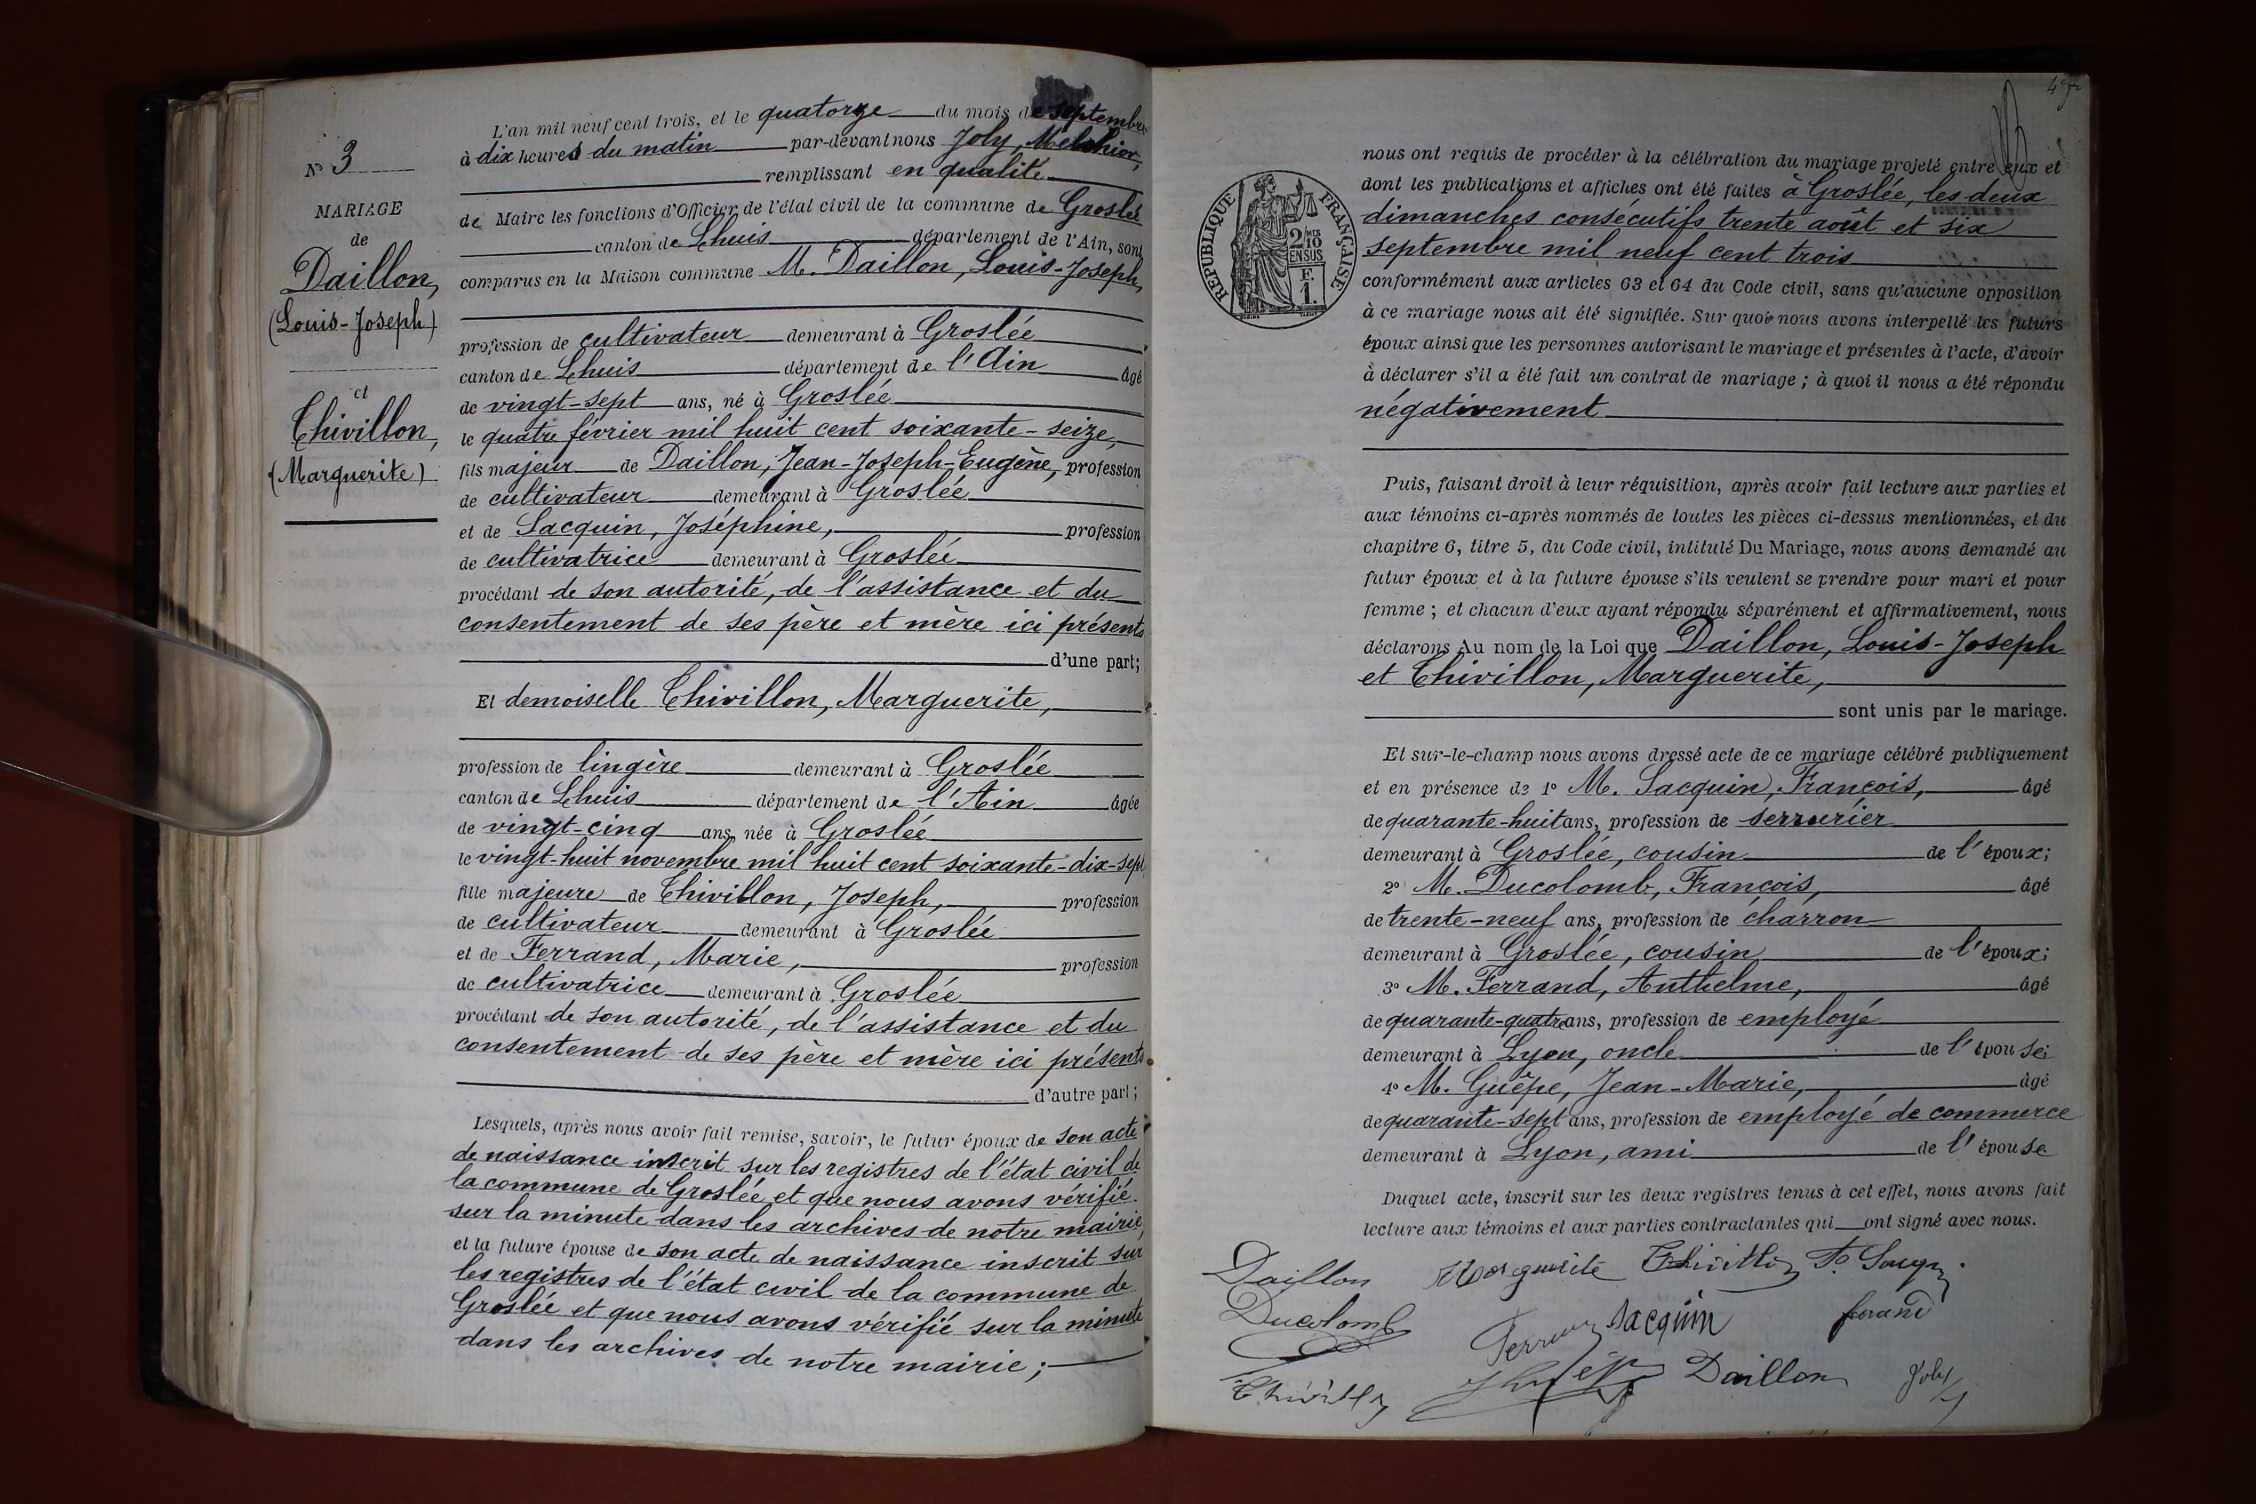 N° 3
MARIAGE
de
Daillon,
(Louis-Joseph)
et
Chivillon,
(Marguerite)
L'an mil neuf cent trois, et le quatorze du mois de septembre
à dix heures du matin par-devant nous Joly, Melchior,
remplissant en qualité
de Maire les fonctions d'Officier de l'état civil de la commune de Groslée
canton de Lhuis département de l'Ain, sont
comparus en la Maison commune M. Daillon, Louis-Joseph,
profession de cultivateur demeurant à Groslée
canton de Lhuis département de l'Ain âgé
de vingt-sept ans, né à Groslée
le quatre février mil huit cent soixante-seize,
fils majeur de Daillon, Jean-Joseph-Eugène, profession
de cultivateur demeurant à Groslée
et de Sacquin, Joséphine, profession
de cultivatrice demeurant à Groslée
procédant de son autorité, de l'assistance et du
consentement de ses père et mère ici présents
d'une part;
Et demoiselle Chivillon, Marguerite,
profession de lingère demeurant à Groslée
canton de Lhuis département de l'Ain âgée
de vingt-cinq ans, née à Groslée
le vingt-huit novembre mil huit cent soixante-dix-sept
fille majeure de Chivillon, Joseph, profession
de cultivateur demeurant à Groslée
et de Ferrand, Marie, profession
de cultivatrice demeurant à Groslée
procédant de son autorité, de l'assistance et du
consentement de ses père et mère ici présents
d'autre part;
Lesquels, après nous avoir fait remise, savoir, le futur époux de son acte
de naissance inscrit sur les registres de l'état civil de
la commune de Groslée et que nous avons vérifié
sur la minute dans les archives de notre mairie,
et la future épouse de son acte de naissance inscrit sur
les registres de l'état civil de la commune de
Groslée et que nous avons vérifié sur la minute
dans les archives de notre mairie;
RÉPUBLIQUE FRANÇAISE
2/10 MES
EN SUS
F.
1.
nous ont requis de procéder à la célébration du mariage projeté entre eux et
dont les publications et affiches ont été faites à Groslée, les deux
dimanches consécutifs trente août et six
septembre mil neuf cent trois
conformément aux articles 63 et 64 du Code civil, sans qu'aucune opposition
à ce mariage nous ait été signifiée. Sur quoi nous avons interpellé les futurs
époux ainsi que les personnes autorisant le mariage et présentes à l'acte, d'avoir
à déclarer s'il a été fait un contrat de mariage; à quoi il nous a été répondu
négativement
Puis, faisant droit à leur réquisition, après avoir fait lecture aux parties et
aux témoins ci-après nommés de toutes les pièces ci-dessus mentionnées, et du
chapitre 6, titre 5, du Code civil, intitulé Du Mariage, nous avons demandé au
futur époux et à la future épouse s'ils veulent se prendre pour mari et pour
femme; et chacun d'eux ayant répondu séparément et affirmativement, nous
déclarons Au nom de la Loi que Daillon, Louis-Joseph
et Chivillon, Marguerite,
sont unis par le mariage.
Et sur-le-champ nous avons dressé acte de ce mariage célébré publiquement
et en présence de 1° M. Sacquin, François, âgé
de quarante-huit ans, profession de serrurier
demeurant à Groslée, cousin de l'époux;
2° M. Ducolomb, François, âgé
de trente-neuf ans, profession de charron
demeurant à Groslée, cousin de l'époux;
3° M. Ferrand, Anthelme, âgé
de quarante-quatre ans, profession de employé
demeurant à Lyon, oncle de l'épouse;
4° M. Guêpe, Jean-Marie, âgé
de quarante-sept ans, profession de employé de commerce
demeurant à Lyon, ami de l'épouse
Duquel acte, inscrit sur les deux registres tenus à cet effet, nous avons fait
lecture aux témoins et aux parties contractantes qui ont signé avec nous.
Daillon Marguerite Chivillon
Ducolomb Sacquin ferand
Chivillon Daillon Joly